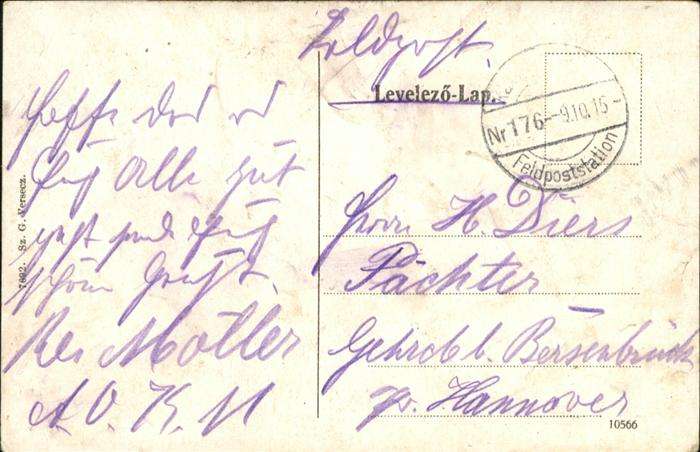 Feldpost.
Levelező-Lap.
Nr 176 - 9.10.15 -
Feldpoststation
Hoffe das es
Euch Alle gut
geht und Euch
schön Gruß.
Res Moller
A.O.K. 11
Herrn H. Diers
Pächter
Gehrde b. Bersenbrück
Pr. Hannover
7692. Sz. G. Versecz.
10566